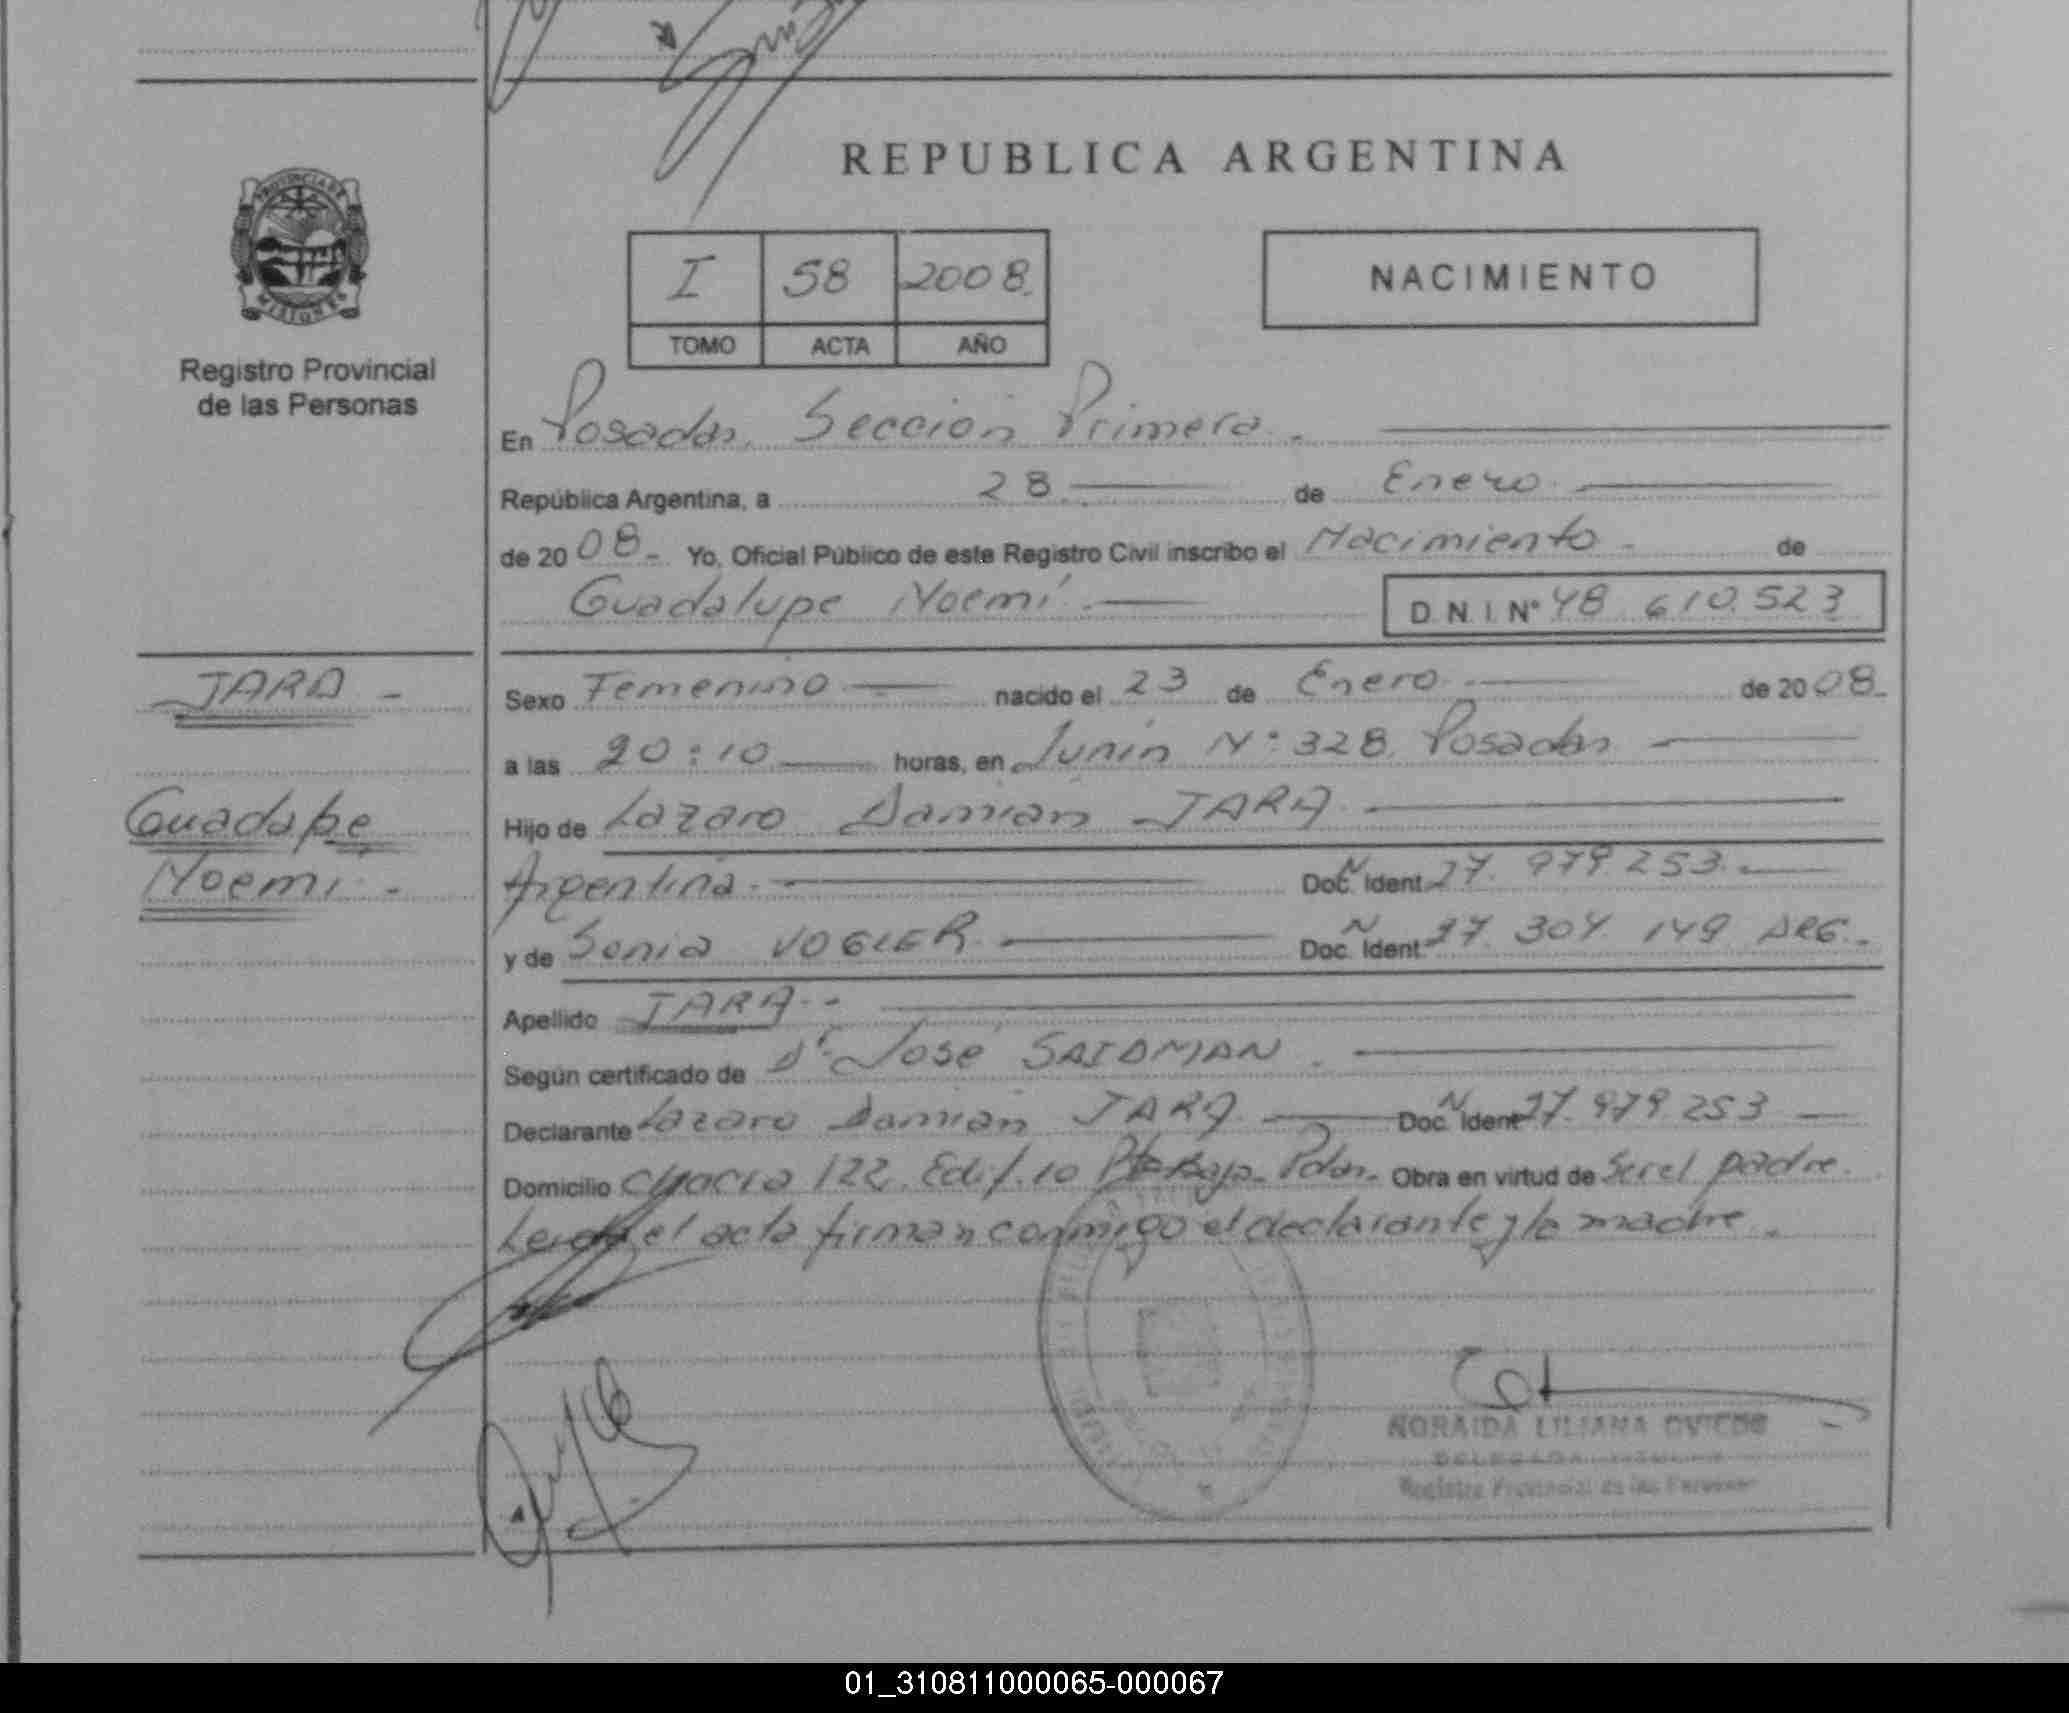 REPUBLICA ARGENTINA
PROVINCIA DE
MISIONES
Registro Provincial
de las Personas
I 58 2008.
TOMO ACTA AÑO
NACIMIENTO
En Posadas. Sección Primera.
República Argentina, a 28 de Enero
de 20 08 Yo, Oficial Público de este Registro Civil inscribo el Nacimiento de
Guadalupe Noemí D.N.I. N° 48 610.523
JARA
Guadalupe
Noemi
Sexo Femenino nacido el 23 de Enero de 20 08
a las 20:10 horas, en Junin N° 328. Posadas
Hijo de Lazaro Damian JARA
Argentina Doc. Ident N 27. 979.253.
y de Sonia VOGLER Doc. Ident N 27. 304. 149 ARG.
Apellido JARA
Según certificado de Dr José SAIDMAN.
Declarante Lazaro Damian JARA Doc. Ident N 27. 979 253
Domicilio chacra 122. Edif. 10 Pta Baja. Pdas. Obra en virtud de Ser el padre.
Leida el acta firman conmigo el declarante y la madre.
NORAIDA LILIANA OVIEDO
DELEGADA TITULAR
Registro Provincial de las Personas
01_310811000065-000067